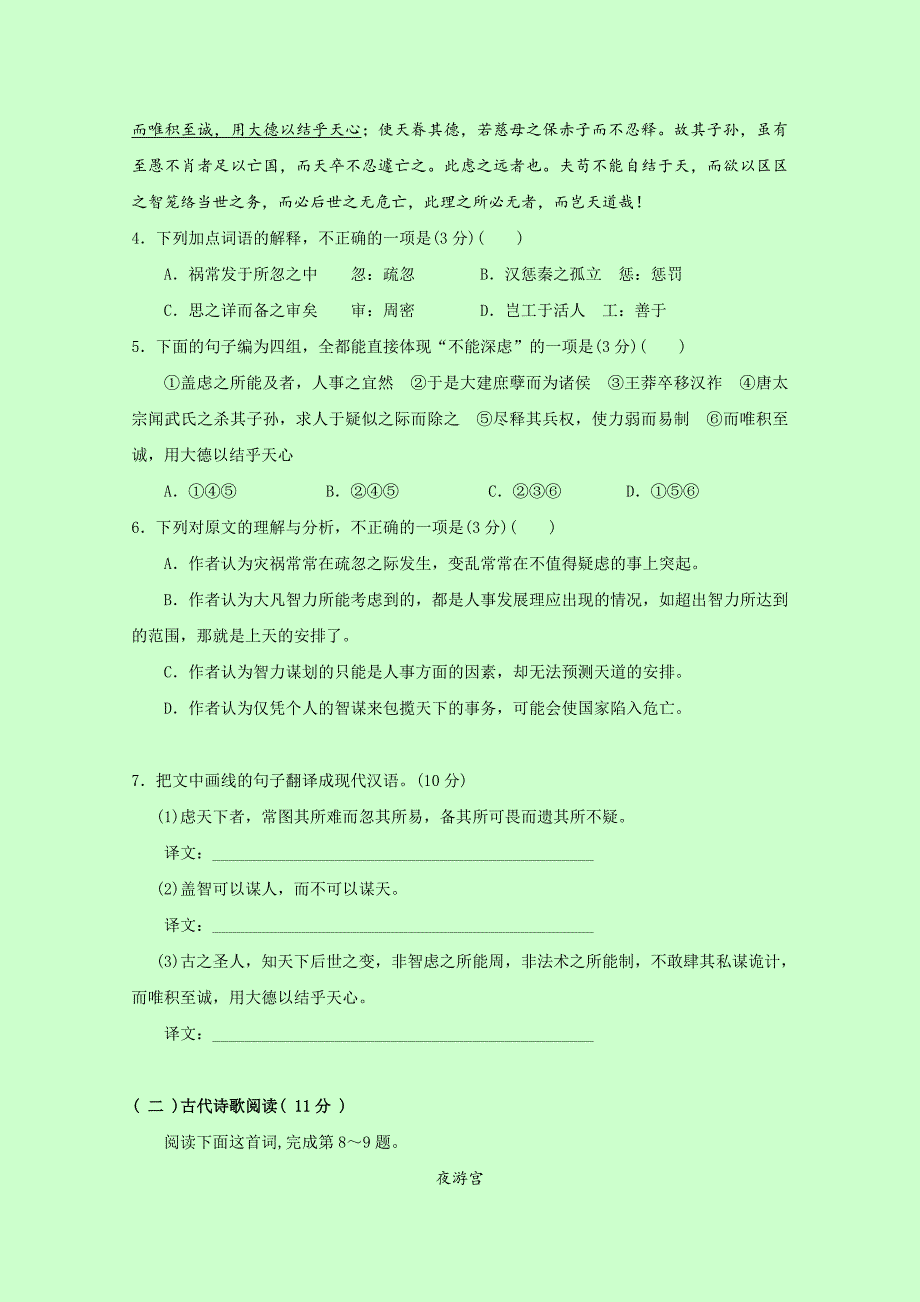 而唯积至诚，用大德以结乎天心；使天眷其德，若慈母之保赤子而不忍释。故其子孙，虽有
至愚不肖者足以亡国，而天卒不忍遽亡之。此虑之远者也。夫苟不能自结于天，而欲以区区
之智笼络当世之务，而必后世之无危亡，此理之所必无者，而岂天道哉！
4．下列加点词语的解释，不正确的一项是(3分)(　　)
A．祸常发于所忽之中　　忽：疏忽　　　　B．汉惩秦之孤立　惩：惩罚
C．思之详而备之审矣　　审：周密　　　　D．岂工于活人　工：善于
5．下面的句子编为四组，全都能直接体现“不能深虑”的一项是(3分)(　　)
①盖虑之所能及者，人事之宜然　②于是大建庶孽而为诸侯　③王莽卒移汉祚　④唐太
宗闻武氏之杀其子孙，求人于疑似之际而除之　⑤尽释其兵权，使力弱而易制　⑥而唯积至
诚，用大德以结乎天心
A．①④⑤　　　　　B．②④⑤　　　　　C．②③⑥　　　　D．①⑤⑥
6．下列对原文的理解与分析，不正确的一项是(3分)(　　)
A．作者认为灾祸常常在疏忽之际发生，变乱常常在不值得疑虑的事上突起。
B．作者认为大凡智力所能考虑到的，都是人事发展理应出现的情况，如超出智力所达到
的范围，那就是上天的安排了。
C．作者认为智力谋划的只能是人事方面的因素，却无法预测天道的安排。
D．作者认为仅凭个人的智谋来包揽天下的事务，可能会使国家陷入危亡。
7．把文中画线的句子翻译成现代汉语。(10分)
(1)虑天下者，常图其所难而忽其所易，备其所可畏而遗其所不疑。
译文：________________________________________________
(2)盖智可以谋人，而不可以谋天。
译文：________________________________________________
(3)古之圣人，知天下后世之变，非智虑之所能周，非法术之所能制，不敢肆其私谋诡计，
而唯积至诚，用大德以结乎天心。
译文：________________________________________________
( 二 )古代诗歌阅读( 11分 )
阅读下面这首词,完成第8～9题。
夜游宫